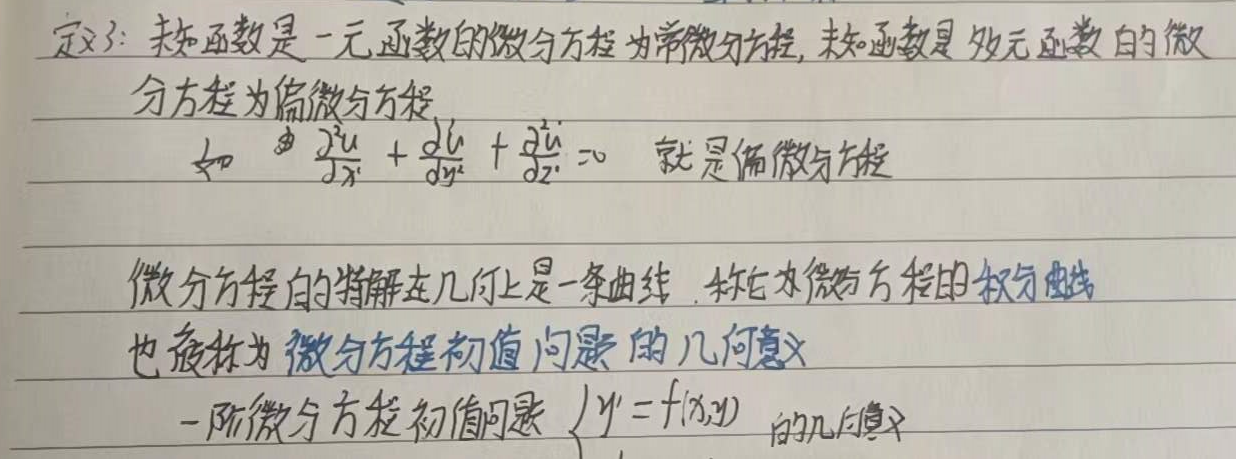 定义3: 未知函数是一元函数的微分方程为常微分方程, 未知函数是多元函数的微
分方程为偏微分方程
如 ∂²u/∂x² + ∂²u/∂y² + ∂²u/∂z² = 0 就是偏微分方程
微分方程的特解在几何上是一条曲线, 称它为微分方程的积分曲线
也被称为微分方程初值问题的几何意义
一阶微分方程初值问题 { y' = f(x,y) 的几何意义